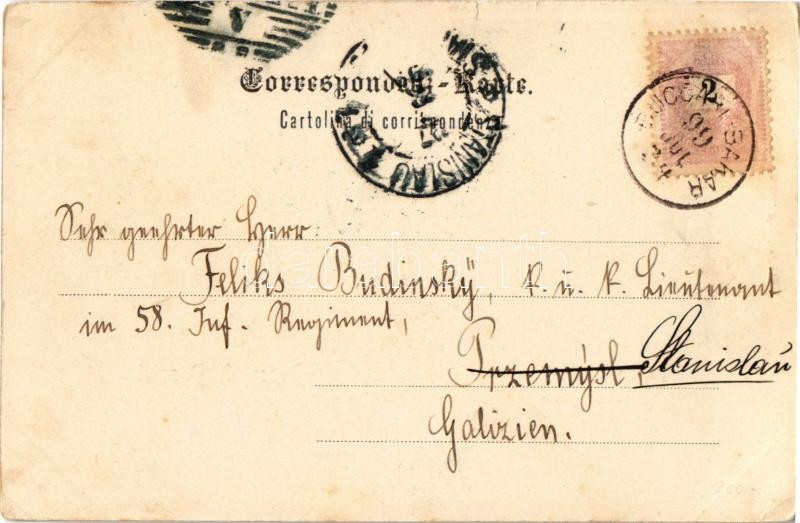 Correspondenz-Karte.
Cartolina di corrispondenza
2
BUCCARI-BAKAR
99
STANISLAU
Sehr geehrter Herr:
Feliks Budinský, k. u. k. Lieutenant
im 58. Inf. Regiment,
Przemýsl, Stanislau
Galizien.